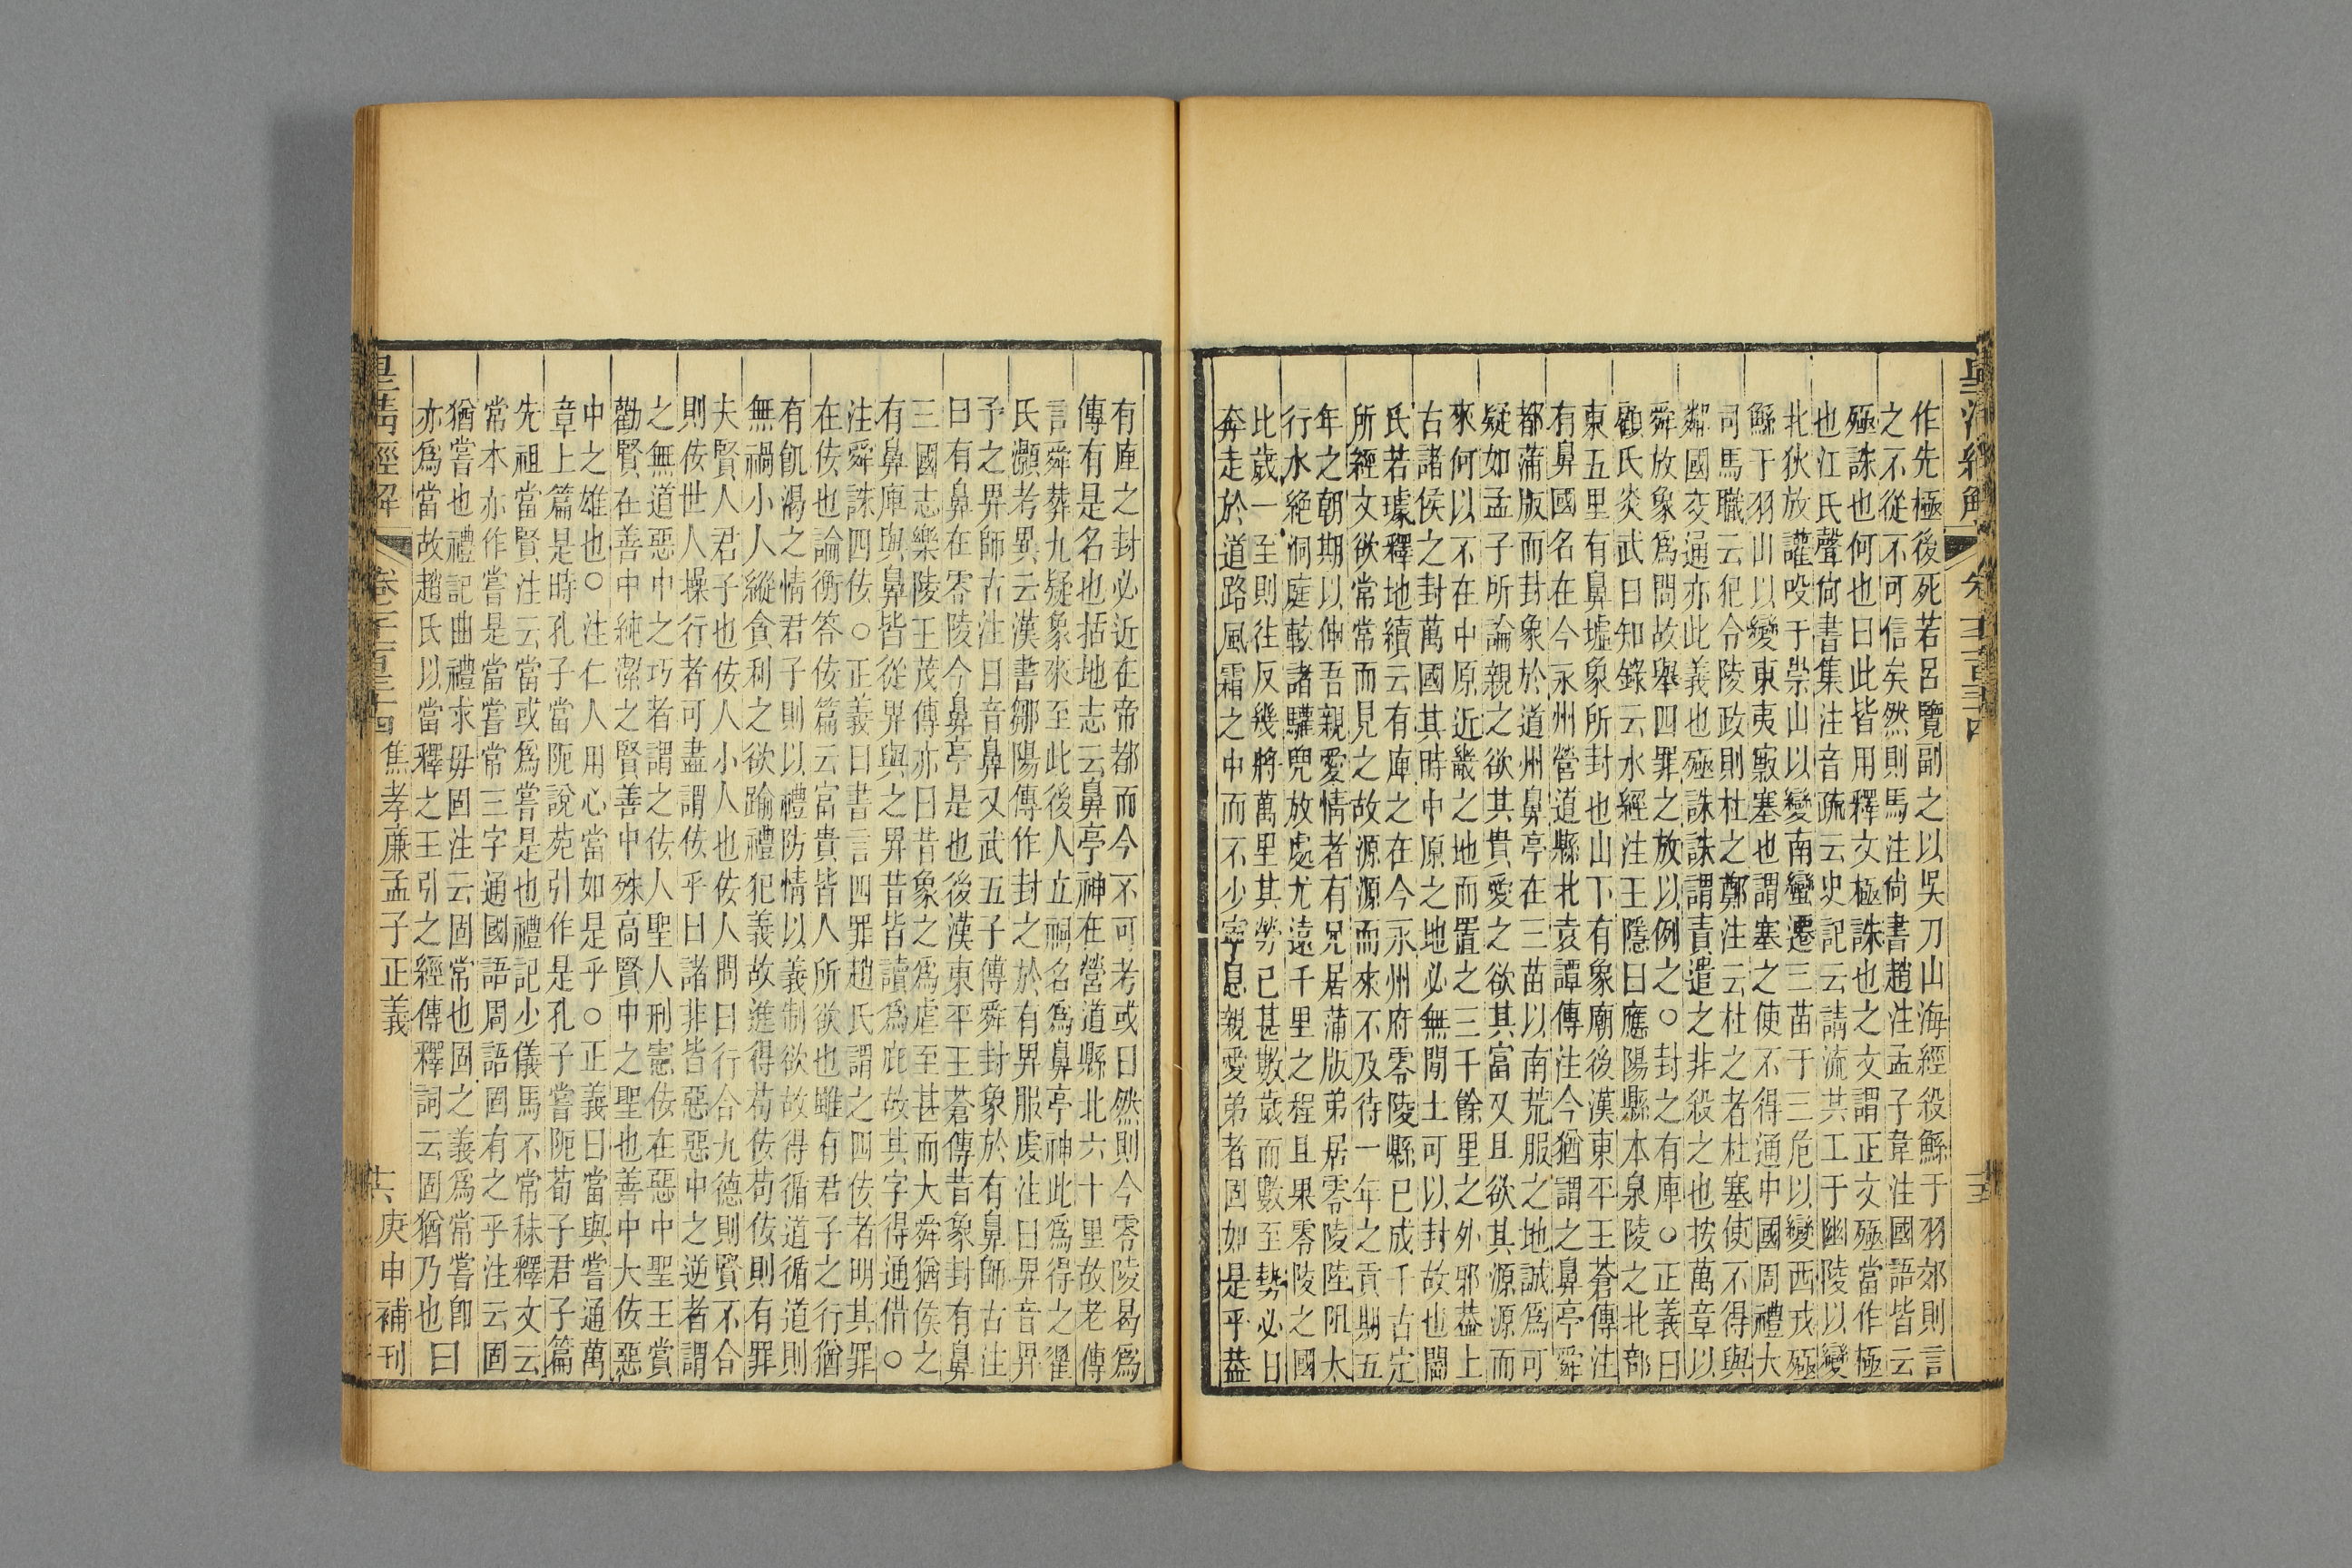 皇清經解
卷千一百三十四
作先極後死若呂覽副之以吳刀山海經殺鯀于羽郊則言
之不從不可信矣然則馬注尙書趙注孟子韋注國語皆云
殛誅也何也曰此皆用釋文極誅也之文謂正文殛當作極
也江氏聲尙書集注音疏云史記云請流共工于幽陵以變
北狄放讙吺于崇山以變南蠻遷三苗于三危以變西戎殛
鯀于羽山以變東夷㝮塞也謂塞之使不得通中國周禮大
司馬職云犯令陵政則杜之鄭注云杜之者杜塞使不得與
鄰國交通亦此義也殛誅誅謂責遣之非殺之也按萬章以
舜放象爲問故舉四罪之放以例之○封之有庳○正義曰
顧氏炎武日知錄云水經注王隱曰應陽縣本泉陵之北部
東五里有鼻墟象所封也山下有象廟後漢東平王蒼傳注
有鼻國名在今永州營道縣北袁譚傳注今猶謂之鼻亭舜
都蒲版而封象於道州鼻亭在三苗以南荒服之地誠爲可
疑如孟子所論親之欲其貴愛之欲其富又且欲其源源而
來何以不在中原近畿之地而置之三千餘里之外邪葢上
古諸侯之封萬國其時中原之地必無閒土可以封故也閻
氏若璩釋地續云有庳之在今永州府零陵縣已成千古定
所經文欲常常而見之故源源而來不及待一年之貢期五
年之朝期以伸吾親愛情者有兄居蒲版弟居零陵陸阻太
行水絶洞庭較諸驩兜放處尤遠千里之程且果零陵之國
比歲一至則往反幾將萬里其勞已甚數歲而數至勢必日
奔走於道路風霜之中而不少寧息親愛弟者固如是乎葢
有庳之封必近在帝都而今不可考或曰然則今零陵曷爲
傳有是名也括地志云鼻亭神在營道縣北六十里故老傳
言舜葬九疑象來至此後人立祠名爲鼻亭神此爲得之翟
氏灝考異云漢書鄒陽傳作封之於有畀服虔注曰畀音畀
予之畀師古注曰音鼻又武五子傳舜封象於有鼻師古注
曰有鼻在零陵今鼻亭是也後漢東平王蒼傳昔象封有鼻
三國志樂陵王茂傳亦曰昔象之爲虐至甚而大舜猶侯之
有鼻庳與鼻皆從畀與之畀昔皆讀爲庇故其字得通借○
注舜誅四佞○正義曰書言四罪趙氏謂之四佞者明其罪
在佞也論衡答佞篇云富貴皆人所欲也雖有君子之行猶
有飢渴之情君子則以禮防情以義制欲故得循道循道則
無禍小人縱貪利之欲踰禮犯義故進得苟佞苟佞則有罪
夫賢人君子也佞人小人也佞人問曰行合九德則賢不合
則佞世人操行者可盡謂佞乎曰諸非皆惡惡中之逆者謂
之無道惡中之巧者謂之佞人聖人刑憲佞在惡中聖王賞
勸賢在善中純潔之賢善中殊高賢中之聖也善中大佞惡
中之雄也○注仁人用心當如是乎○正義曰當與嘗通萬
章上篇是時孔子當阨說苑引作是孔子嘗阨荀子君子篇
先祖當賢注云當或爲嘗是也禮記少儀馬不常秣釋文云
常本亦作嘗是當嘗常三字通國語周語固有之乎注云固
猶嘗也禮記曲禮求毋固注云固常也固之義爲常嘗卽曰
亦爲當故趙氏以當釋之王引之經傳釋詞云固猶乃也
皇清經解
卷千一百三十四 焦孝廉孟子正義
六 庚申補刊